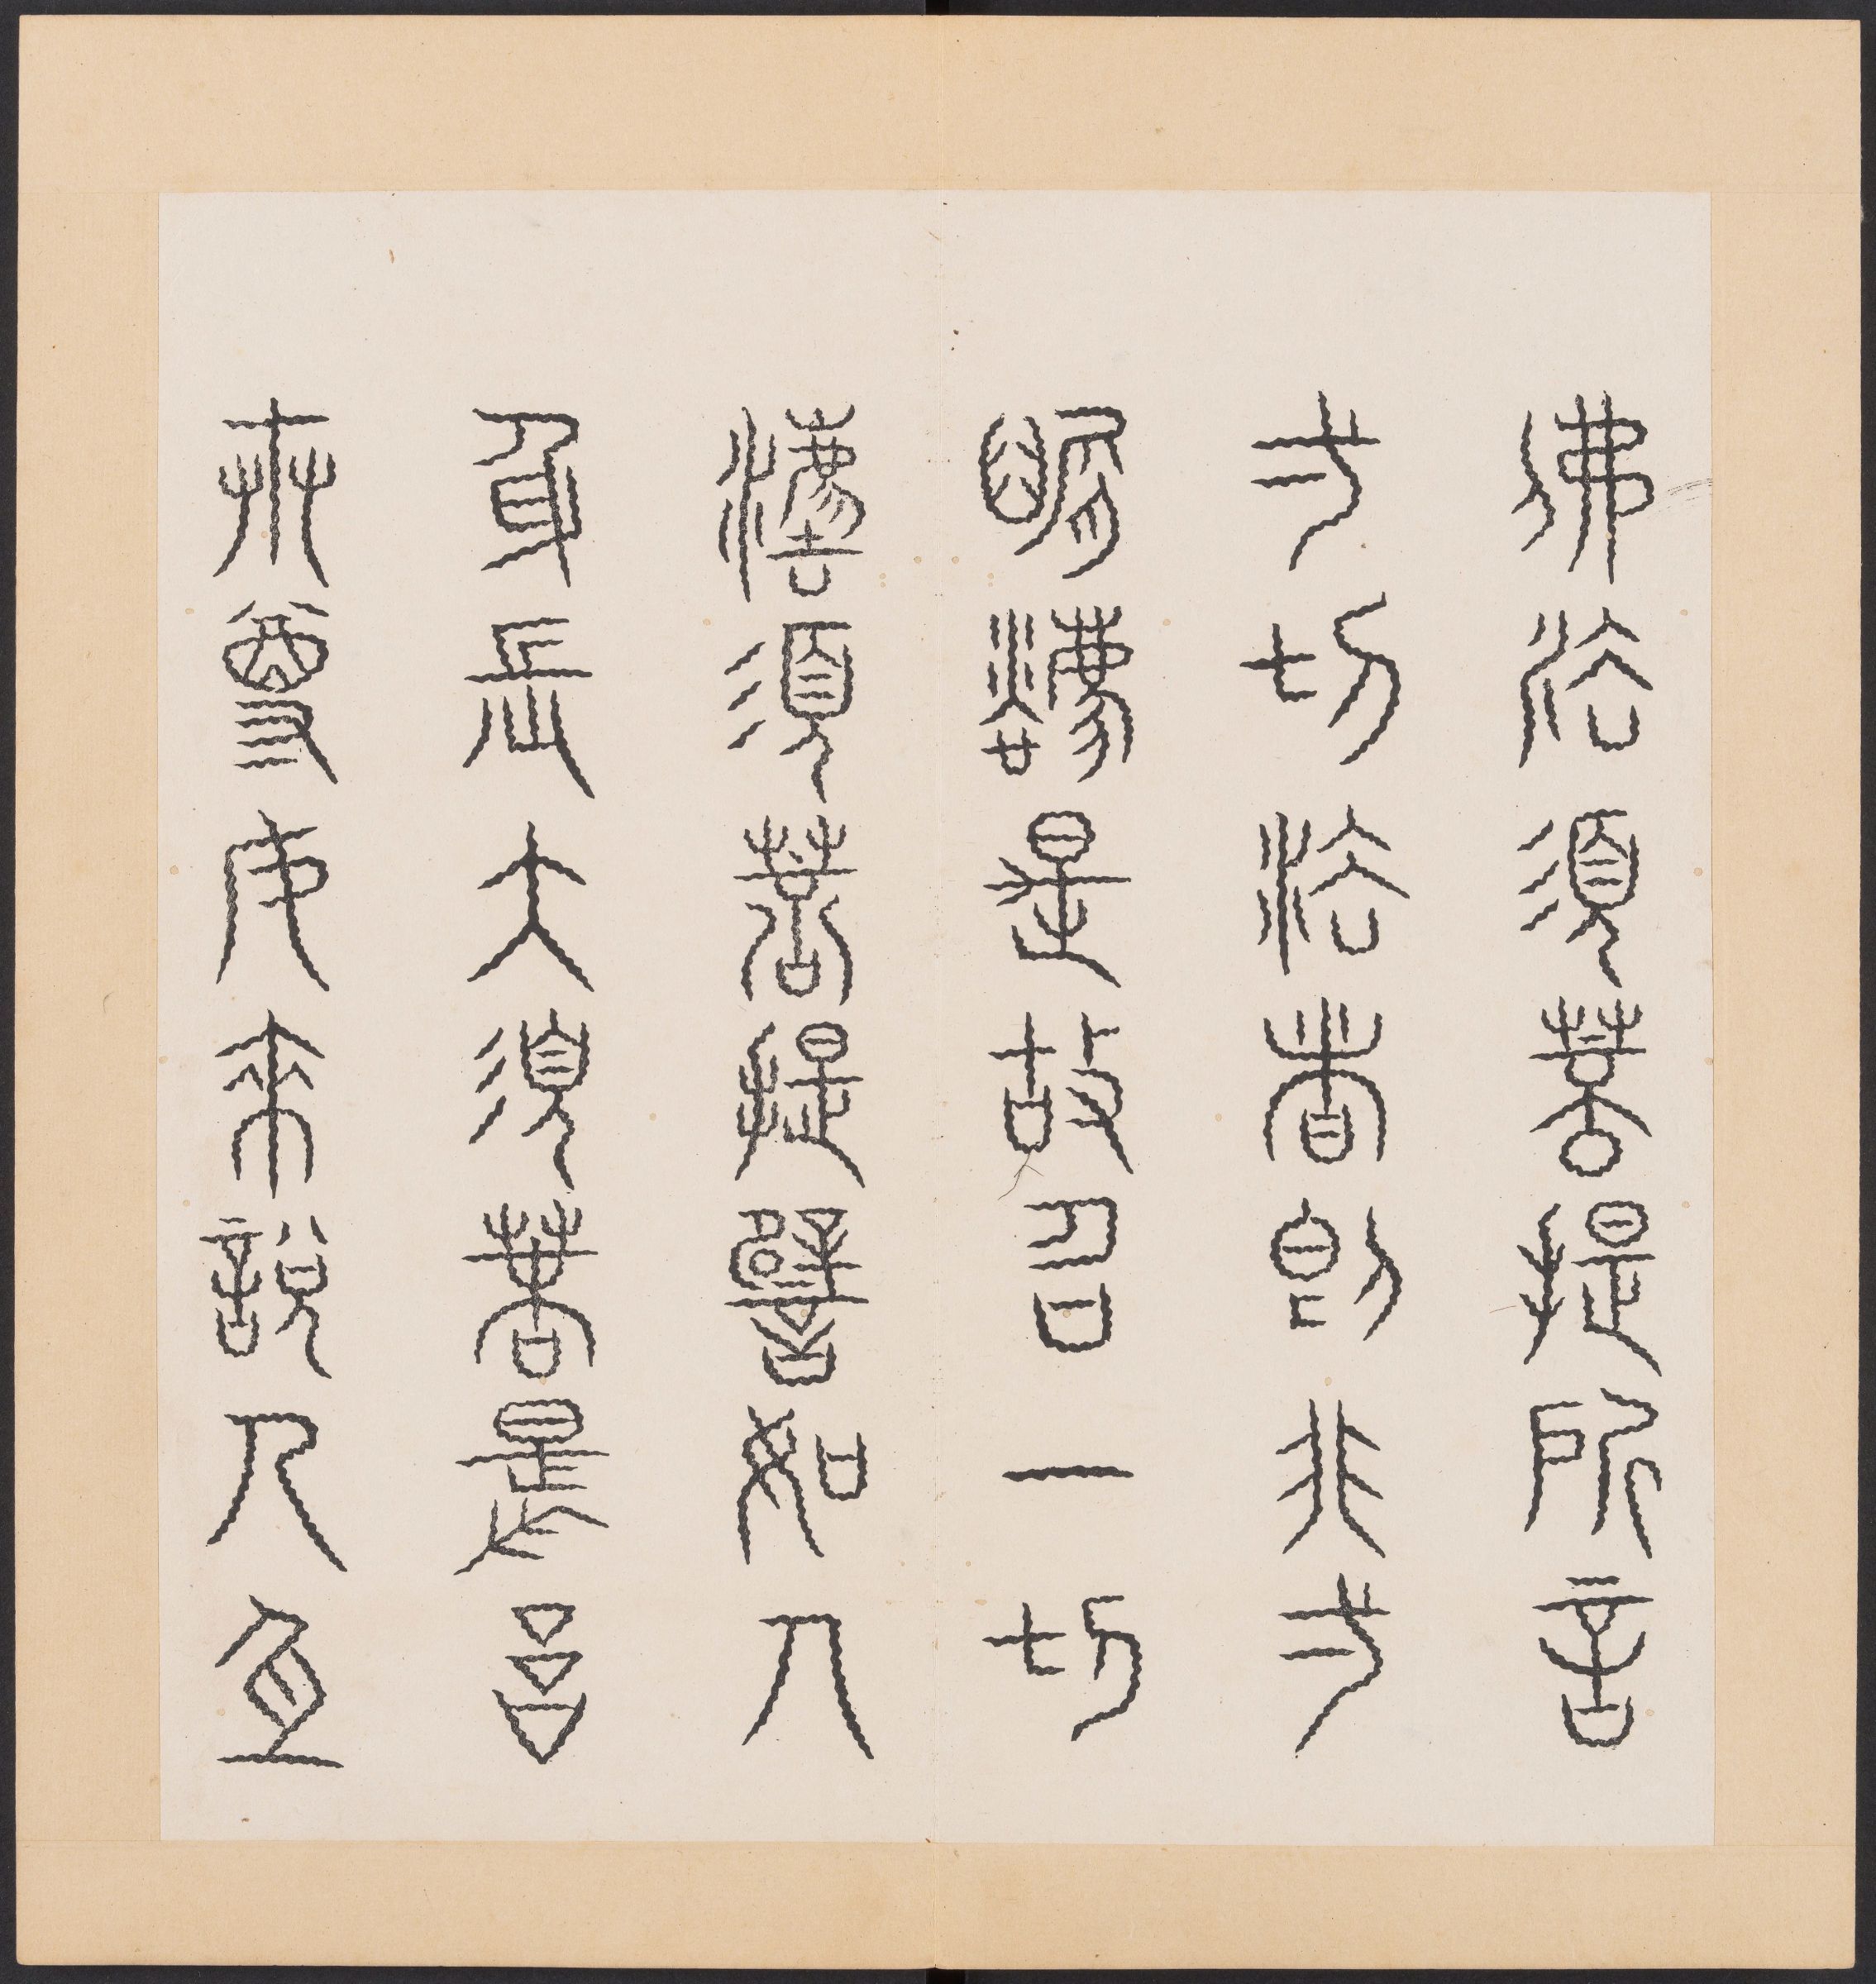 佛法須菩提所言
一切法者即非一
切法是故名一切
法須菩提譬如人
身長大須菩提言
世尊如來說人身